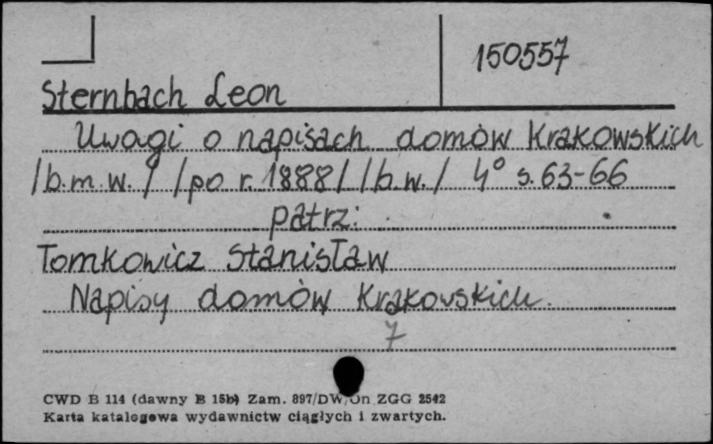 150557
Sternbach Leon
Uwagi o napisach domów Krakowskich
/b.m.w./ /po r. 1888/ /b.w./ 4° s. 63-66
patrz:
Tomkowicz Stanisław
Napisy domów Krakowskich.
7
CWD B 114 (dawny B 15b) Zam. 897/DW/On ZGG 2542
Karta katalogowa wydawnictw ciągłych i zwartych.